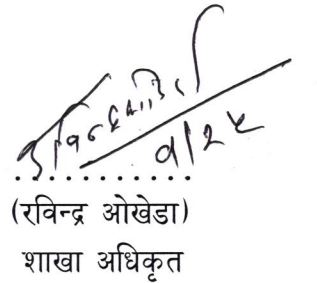 १/२५
. . . . . . . . . .
(रविन्द्र ओखेडा)
शाखा अधिकृत